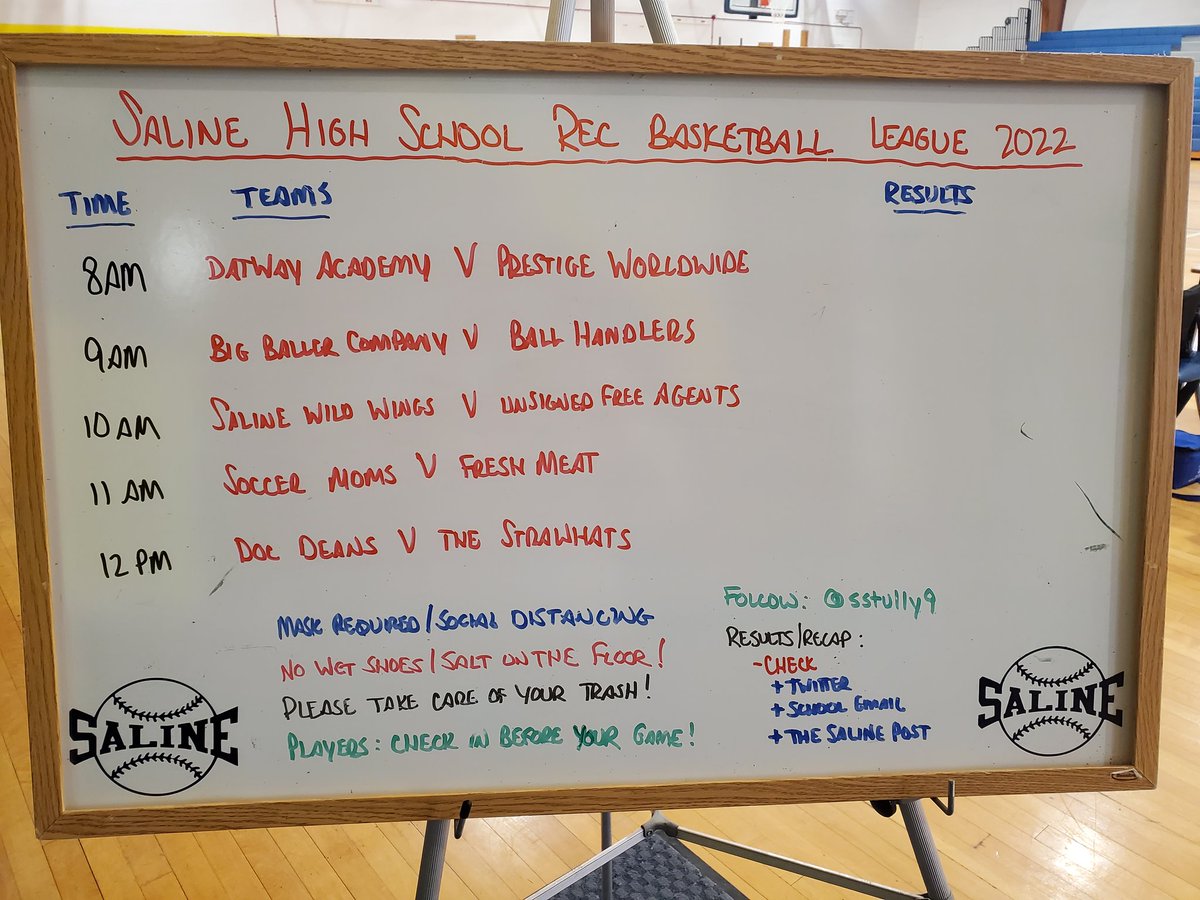 SALINE HIGH SCHOOL REC BASKETBALL LEAGUE 2022
TIME TEAMS RESULTS
8AM DATWAY ACADEMY V PRESTIGE WORLDWIDE
9AM BIG BALLER COMPANY V BALL HANDLERS
10 AM SALINE WILD WINGS V UNSIGNED FREE AGENTS
11 AM SOCCER MOMS V FRESH MEAT
12 PM DOC DEANS V THE STRAWHATS
MASK REQUIRED/SOCIAL DISTANCING
NO WET SHOES/SALT ON THE FLOOR!
PLEASE TAKE CARE OF YOUR TRASH!
PLAYERS: CHECK IN BEFORE YOUR GAME!
FOLLOW: @sstully9
RESULTS/RECAP:
-CHECK
+TWITTER
+SCHOOL EMAIL
+THE SALINE POST
SALINE
SALINE